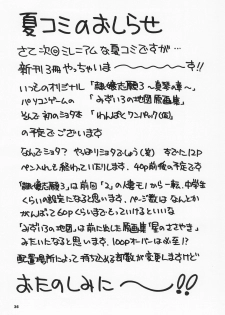 夏コミのおしらせ
さて次のミレニアムな夏コミですが…
新刊3冊やっちゃいま〜〜〜す!!
いつものオリジナル「　　志願3〜　の章〜」
パソコンゲームの「みずいろの地図原画集」
そんで初のショタ本「わんぱくワンパック(仮)」
の予定でございます
なんでショタ?やっぱりショタでしょう(笑)すでに12P
ペン入れも終わっていたりします。40P前後の予定です
「　　志願3」は前回「2」の　モノから一転、中学生
くらいの設定になると思います。ページ数はなんとか
がんばって60Pくらいまでもっていけるといいな
「みずいろの地図」は前に出した原画集「星のささやき」
みたいになると思います。100Pオーバーは必至!?
配置場所によって持ち込める部数が変動しますけど
おたのしみに〜〜!!